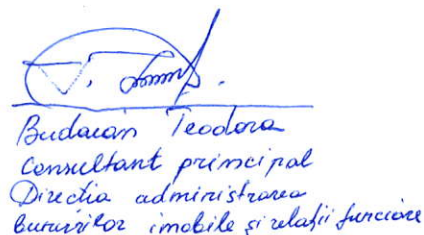 Budacan Teodora
Consultant principal
Direcția administrarea
bunurilor imobile și relații funciare